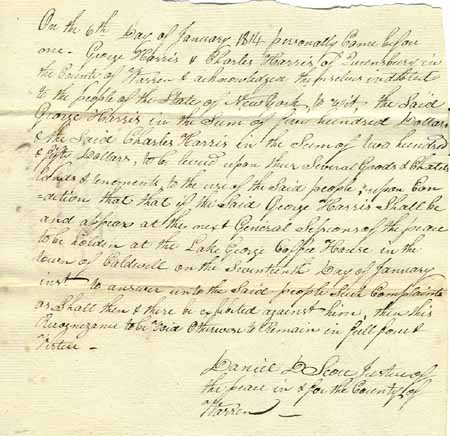 On the 6th Day of January 1814 personally Came before
me - George Harris & Charles Harris of Queensbury in
the County of Warren & acknowledged themselves indebted
to the people of the State of New York to wit the Said
George Harris in the Sum of five hundred Dollars
& the Said Charles Harris in the Sum of two hundred
& fifty Dollars, to be levied upon their Several Goods & Chatels
lands & tenements to the use of the Said people, upon Con
=dition that that if the Said George Harris Shall be
and appear at the next General Sessions of the peace
to be holden at the Lake George Coffee House in the
town of Caldwell on the Seventeenth Day of January
inst to answer unto the Said people Such Complaints
as Shall then & there be exhibited against him, then this
Recognizance to be Void Otherwise to Remain in full force &
Virtue -
Daniel D Scott Justice of
the peace in & for the County of
Warren -